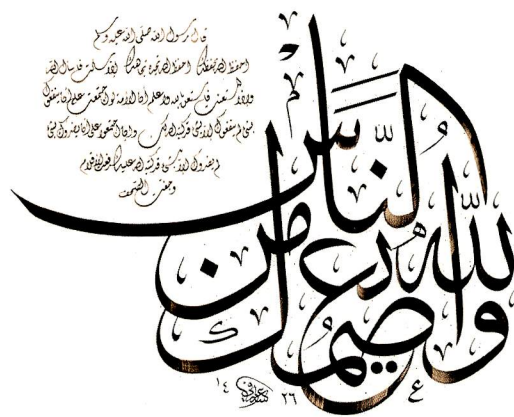 قال رسول الله صلى الله عليه وسلم
احفظ الله يحفظك احفظ الله تجده تجاهك إذا سألت فاسأل الله
وإذا استعنت فاستعن بالله واعلم أن الأمة لو اجتمعت على أن ينفعوك
بشيء لم ينفعوك إلا بشيء قد كتبه الله لك وإن اجتمعوا على أن يضروك بشيء
لم يضروك إلا بشيء قد كتبه الله عليك رفعت الأقلام
وجفت الصحف
والله يعصمك من الناس
١٤ ٢٦